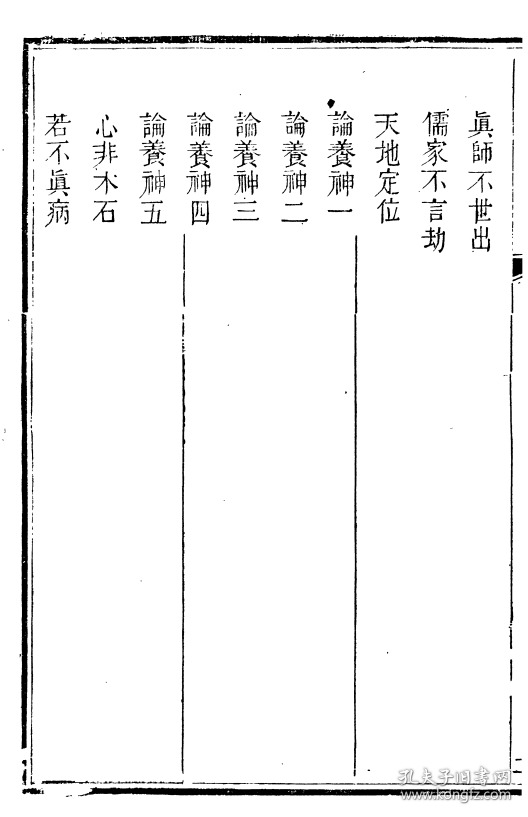 眞師不世出
儒家不言劫
天地定位
論養神一
論養神二
論養神三
論養神四
論養神五
心非木石
若不眞病
孔夫子旧书网
www.kongfz.com